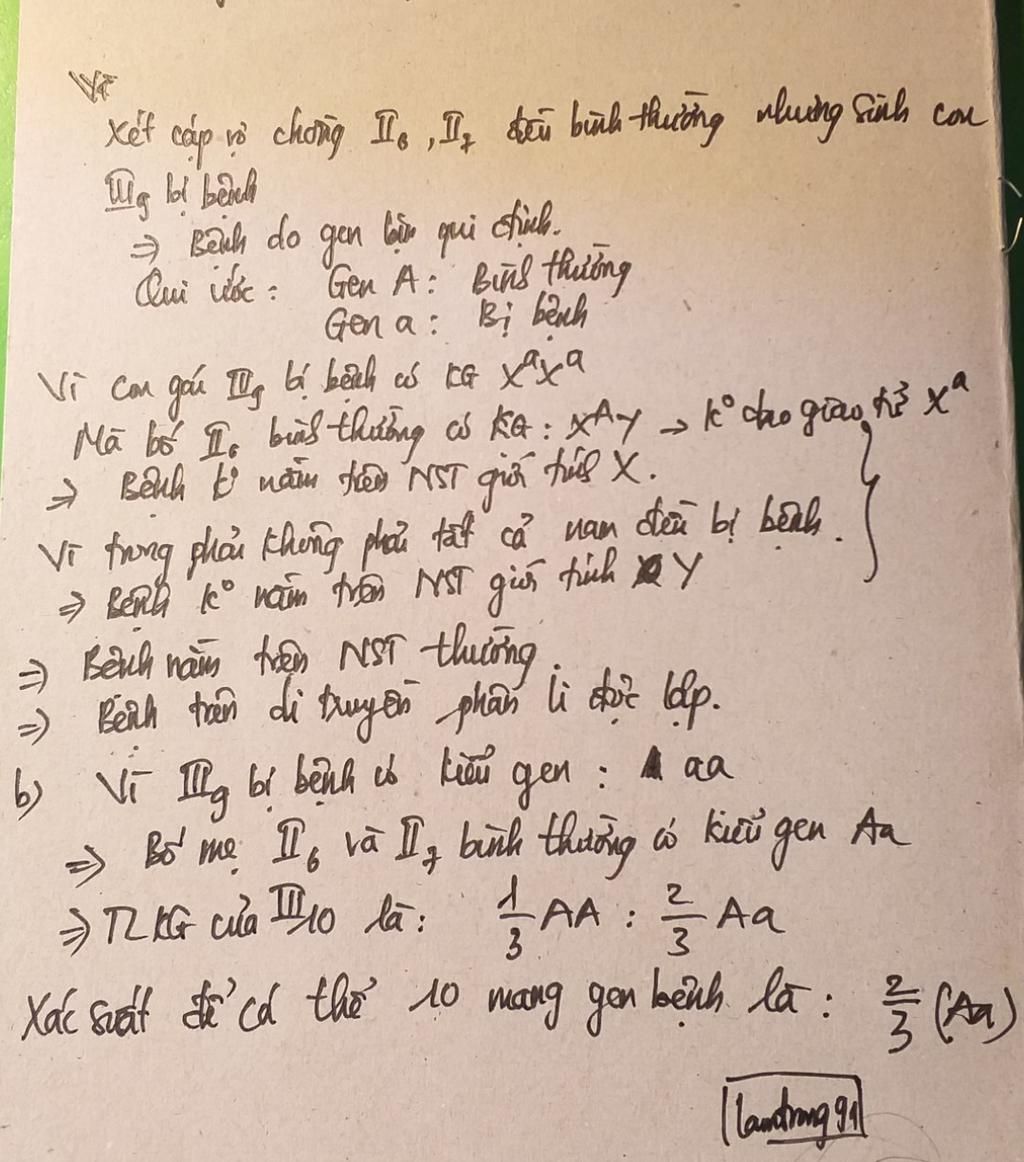 Vì
Xét cặp vợ chồng II₆, II₇ đều bình thường nhưng sinh con
III₉ bị bệnh
⇒ Bệnh do gen lặn qui định.
Qui ước: Gen A: Bình thường
Gen a: Bị bệnh
Vì con gái III₉ bị bệnh có KG XᵃXᵃ
Mà bố II₆ bình thường có KG: XᴬY → k° cho giao tử Xᵃ
⇒ Bệnh k° nằm trên NST giới tính X.
Vì trong phả không phải tất cả nam đều bị bệnh.
⇒ Bệnh k° nằm trên NST giới tính Y
⇒ Bệnh nằm trên NST thường.
⇒ Bệnh trên di truyền phân li độc lập.
b) Vì III₉ bị bệnh có kiểu gen: aa
⇒ Bố mẹ II₆ và II₇ bình thường có kiểu gen Aa
⇒ TLKG của III10 là: 1/3 AA : 2/3 Aa
Xác suất để cá thể 10 mang gen bệnh là: 2/3 (Aa)
lamtrong91